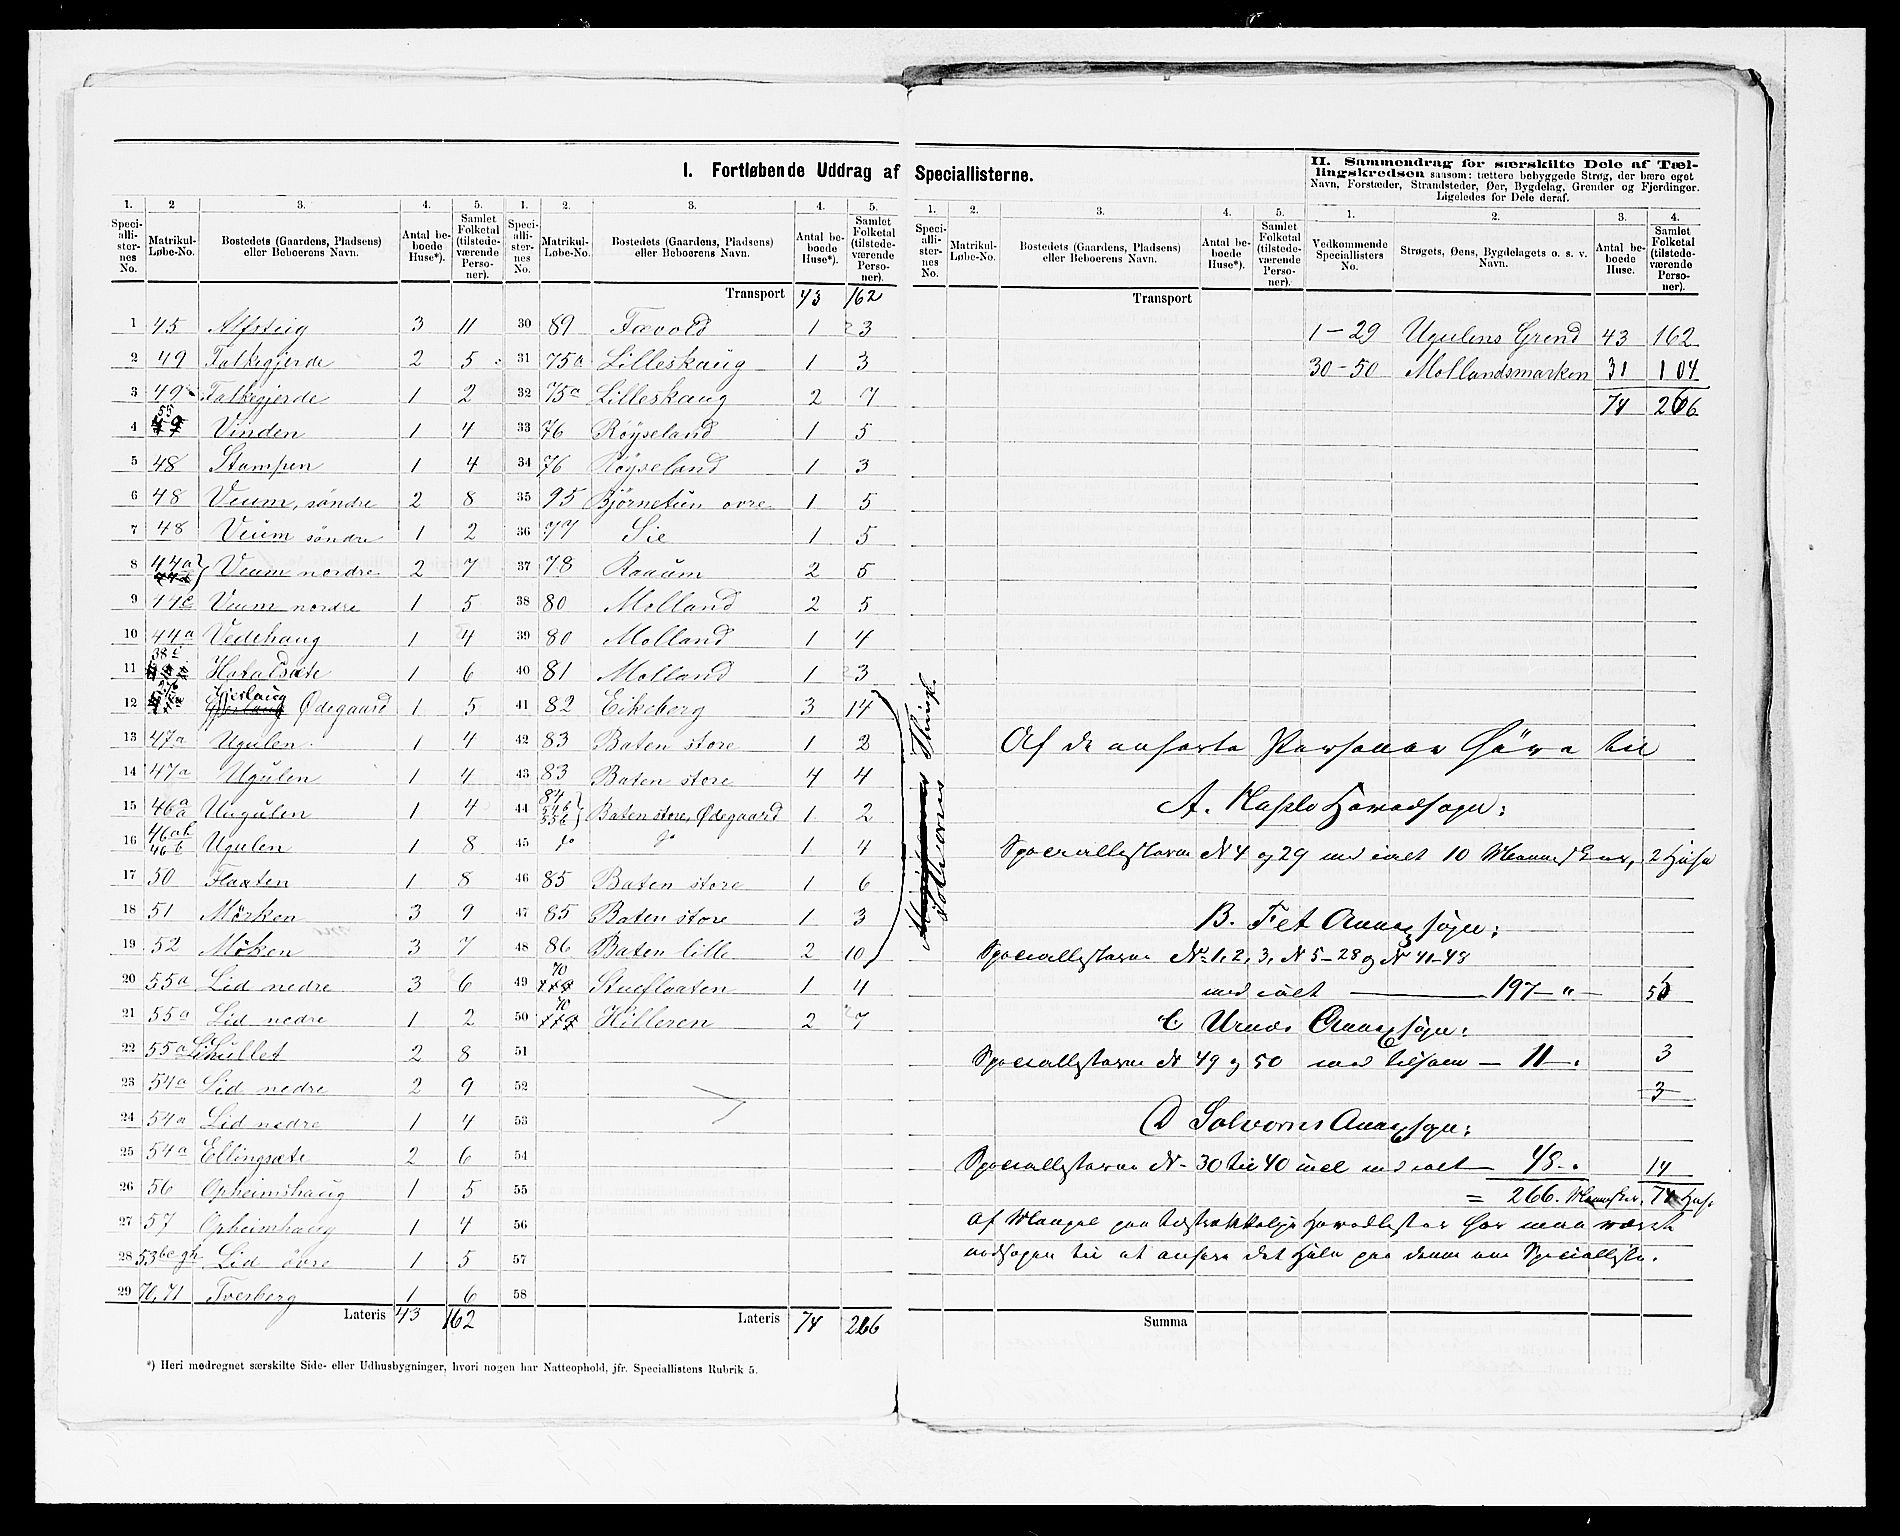 I. Fortløbende Uddrag af Speciallisterne.
II. Sammendrag for særskilte Dele af Tællingskredsen saasom: tættere bebyggede Strøg, der bære eget
Navn, Forstæder, Strandsteder, Øer, Bygdelag, Grender og Fjerdinger.
Ligeledes for Dele deraf.
1. 2 3. 4. 5.
Speciallisternes No. Matrikul-Løbe-No. Bostedets (Gaardens, Pladsens) eller Beboerens Navn. Antal beboede Huse*). Samlet Folketal (tilstedeværende Personer).
1 45 Alfsteig 3 11
2 49 Falkegjerde 2 5
3 49 Falkegjerde 1 2
4 55 Vinden 1 4
5 48 Stampen 1 4
6 48 Veum, søndre 2 8
7 48 Veum søndre 1 2
8 44a Veum nordre 2 7
9 44c Veum nordre 1 5
10 44a Vedehaug 1 4
11 38c Hatalsæte 1 6
12 Gjerlaug Ødegaard 1 5
13 47a Ugulen 1 4
14 47a Ugulen 1 4
15 46a Uugulen 1 4
16 46ab 46b Ugulen 1 8
17 50 Flaaten 1 8
18 51 Mørken 3 9
19 52 Møken 3 7
20 55a Lid nedre 3 6
21 55a Lid nedre 1 2
22 55a Lihullet 2 8
23 54a Lid nedre 2 9
24 54a Lid nedre 1 4
25 54a Ellingsæte 2 6
26 56 Opheimshaug 1 5
27 57 Opheimhaug 1 4
28 53bcgh Lid øvre 1 5
29 70, 71 Tverberg 1 6
Lateris 43 162
*) Heri medregnet særskilte Side- eller Udhusbygninger, hvori nogen har Natteophold, jfr. Speciallistens Rubrik 5.
1. 2. 3. 4. 5.
Speciallisternes No. Matrikul-Løbe-No. Bostedets (Gaardens, Pladsens) eller Beboerens Navn. Antal beboede Huse*). Samlet Folketal (tilstedeværende Personer).
Transport 43 162
30 89 Fævold 1 3
31 75a Lilleskaug 1 3
32 75a Lilleskaug 2 7
33 76 Røyseland 1 5
34 76 Røyseland 1 3
35 95 Bjørnetun øvre 1 5
36 77 Sie 1 5
37 78 Raaum 2 5
38 80 Molland 2 5
39 80 Molland 1 4
40 81 Molland 1 3
41 82 Eikeberg 3 14
42 83 Baten store 1 2
43 83 Baten store 4 4
44 84 54b 55b Baten store, Ødegaard 1 2
45 do do 1 4
46 85 Baten store 1 6
47 85 Baten store 1 3
48 86 Baten lille 2 10
49 70 Stueflaaten 1 4
50 70 Hilleren 2 7
51
52
53
54
55
56
57
58
Lateris 74 266
Solvorns Thingl.
1. 2. 3. 4. 5.
Speciallisternes No. Matrikul-Løbe-No. Bostedets (Gaardens, Pladsens) eller Beboerens Navn. Antal beboede Huse*). Samlet Folketal (tilstedeværende Personer).
Transport
1. 2. 3. 4.
Vedkommende Speciallisters No. Strøgets, Øens, Bygdelagets o. s. v. Navn. Antal beboede Huse. Samlet Folketal (tilstedeværende Personer).
1-29 Ugulens Grend 43 162
30-50 Mollandsmarken 31 104
74 266
Af de anførte Personer høre til
A. Hafslo Hovedsogn:
Speciallisterne No 4 og 29 med ialt 10 Mennesker, 2 Huse
B. Fet Annexsogn:
Speciallisterne No 1, 2, 3, No 5-28 og No 41-48
med ialt — 197 — "
C. Urnes Annexsogn:
Speciallisterne No 49 og 50 med tilsam — 11 — 3
3
D Solvorns Annexsogn:
Speciallisterne No 30 til 40 incl med ialt — 48 — 14
= 266 Mennesker, 74 Huse
Af Mangel paa tilstrækkelige Hovedlister har man været
nødsagen til at anføre det Hele paa denne ene Specialliste.
Summa